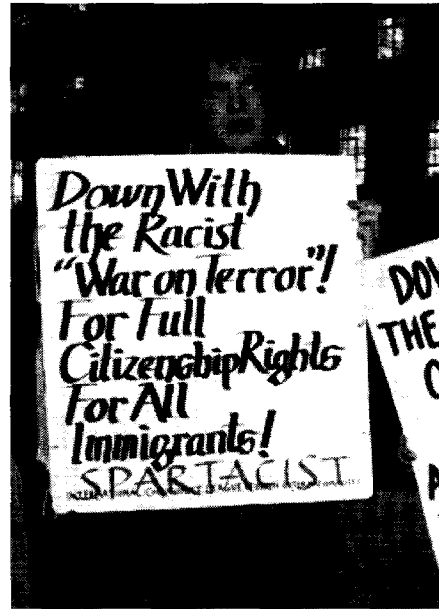 Down With
the Racist
"War on Terror"!
For Full
Citizenship Rights
For All
Immigrants!
SPARTACIST
DO
THE